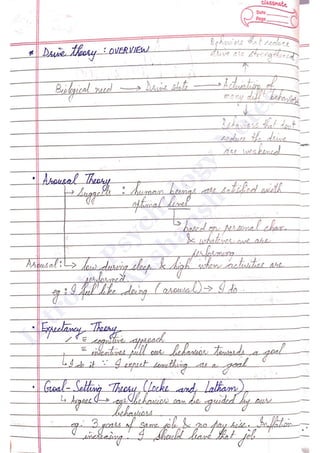 classmate
Date
Page
* Drive theory : OVERVIEW
Behaviors that reduce
drive are strengthened
Biological need → Drive state → Activation of
many diff. behaviors
Behaviors that don't
reduce the drive
are weakened
• Arousal Theory
→ Suggests : human beings are satisfied with
optimal level
→ based on personal char.
& whatever we are
performing
Arousal: → low during sleep & high when activities are
performed
eg: I feel like doing (arousal) → I do
• Expectancy Theory
= cognitive approach
= incentives pull our behavior towards a goal
→ I do it ∵ I expect something as a goal
• Goal-Setting Theory (Locke and Latham)
our behavior can be guided by our
behaviors
eg: 3 years of same job & no pay rise. Inflation
increasing. I should leave that job